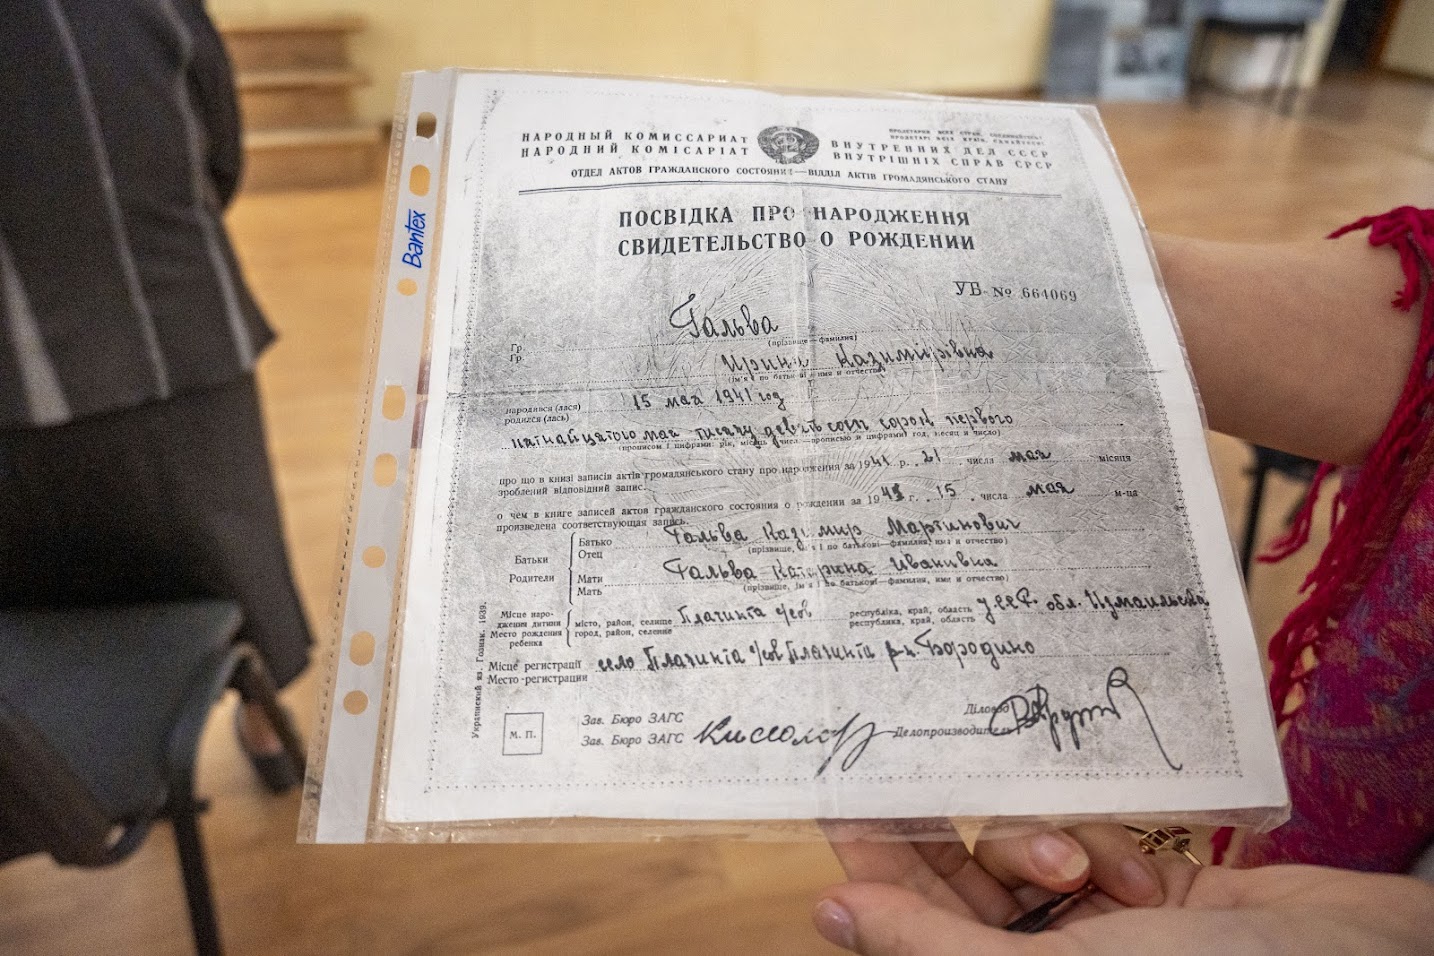 Bantex
НАРОДНЫЙ КОМИССАРИАТ
НАРОДНИЙ КОМІСАРІАТ
ПРОЛЕТАРИИ ВСЕХ СТРАН, СОЕДИНЯЙТЕСЬ!
ВНУТРЕННИХ ДЕЛ СССР
ВНУТРІШНІХ СПРАВ СРСР
ОТДЕЛ АКТОВ ГРАЖДАНСКОГО СОСТОЯНИЯ—ВІДДІЛ АКТІВ ГРОМАДЯНСЬКОГО СТАНУ
ПОСВІДКА ПРО НАРОДЖЕННЯ
СВИДЕТЕЛЬСТВО О РОЖДЕНИИ
УБ- № 664069
Гр. Гальва
Гр. (прізвище—фамилия)
Ирина Казимірівна
(ім'я і по батькові имя и отчество)
народився (лася) 15 мая 1941 год
родился (лась)
пятнайцатого мая тисячу девятьсот сорок первого
(прописом і цифрами: рік, місяць і число—прописью и цифрами: год, месяц и число)
про що в книзі записів актів громадянського стану про народження за 1941 р. 21 числа мая місяця
зроблений відповідний запис.
о чем в книге записей актов гражданского состояния о рождении за 194 г. 15 числа мая м-ца
произведена соответствующая запись.
Батьки Родители
Батько Отец Гальва Казимир Мартинович
(прізвище, ім'я і по батькові—фамилия, имя и отчество)
Мати Мать Гальва Катерина Ивановна
(прізвище, ім'я і по батькові—фамилия, имя и отчество)
Місце народження дитини місто, район, селище Плачинта республіка, край, область УССР. обл. Измаильска
Место рождения ребенка город, район, селение республика, край, область
Місце регистрації село Плачинта Плачинта р-н. Бородино
Место регистрации
М. П.
Зав. Бюро ЗАГС Діловод
Зав. Бюро ЗАГС Делопроизводитель
Украинский яз. Гознак. 1939.